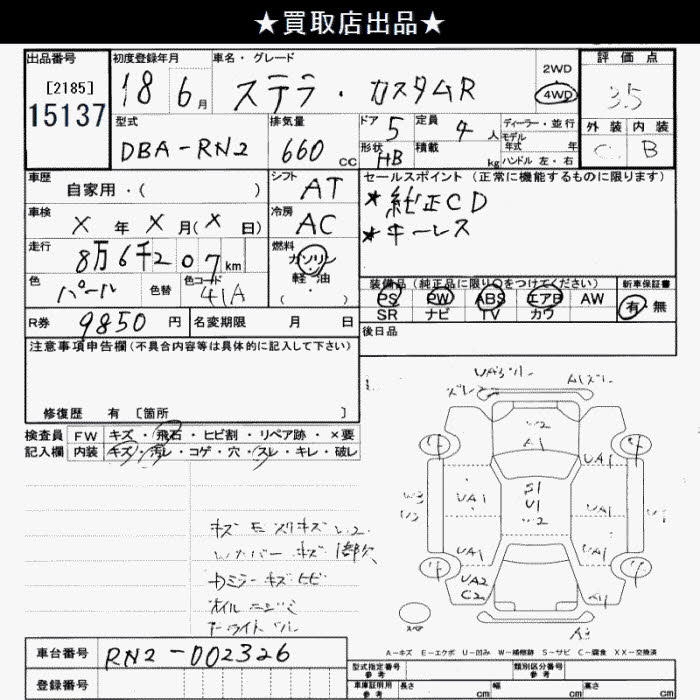 ★買取店出品★
出品番号
[2185]
15137
初度登録年月
18 6月
車名・グレード
ステラ・カスタムR
2WD
4WD
評価点
3.5
型式
DBA-RN2
排気量
660 CC
ドア 5
定員 4 人
ディーラー・並行
モデル年式 年
形状 HB
積載 kg
ハンドル 左・右
外装 内装
C B
車歴
自家用・( )
シフト AT
セールスポイント (正常に機能するものに限ります)
★純正CD
★キーレス
車検
X 年 X 月(X 日)
冷房 AC
走行
8万6千207km
燃料
ガソリン
軽・油
( ・ )
色
パール
色替
色コード
41A
装備品(純正品に限り○をつけてください)
PS PW ABS エアB AW
SR ナビ TV カワ
新車保証書
有・無
R券 9850円
名変期限 月 日
後日品
注意事項申告欄(不具合内容等は具体的に記入して下さい)
修復歴 有 〔箇所 〕
検査員記入欄
FW キズ・飛石・ヒビ割・リペア跡・×要
内装 キズ・汚レ・コゲ・穴・スレ・キレ・破レ
A1
UA1
W3
U3
UA1
S1
U1
W2
UA1
U1
UA1
UA1
UA2
C2
A4
A3
スペア
オイルニジミ
A-キズ E-エクボ U-凹み W-補修跡 S-サビ C-腐食 XX-交換済
車台番号
RN2-002326
登録番号
型式指定番号
参考
類別区分番号
参考
車庫証明用
参考
長さ cm
幅 cm
高さ cm